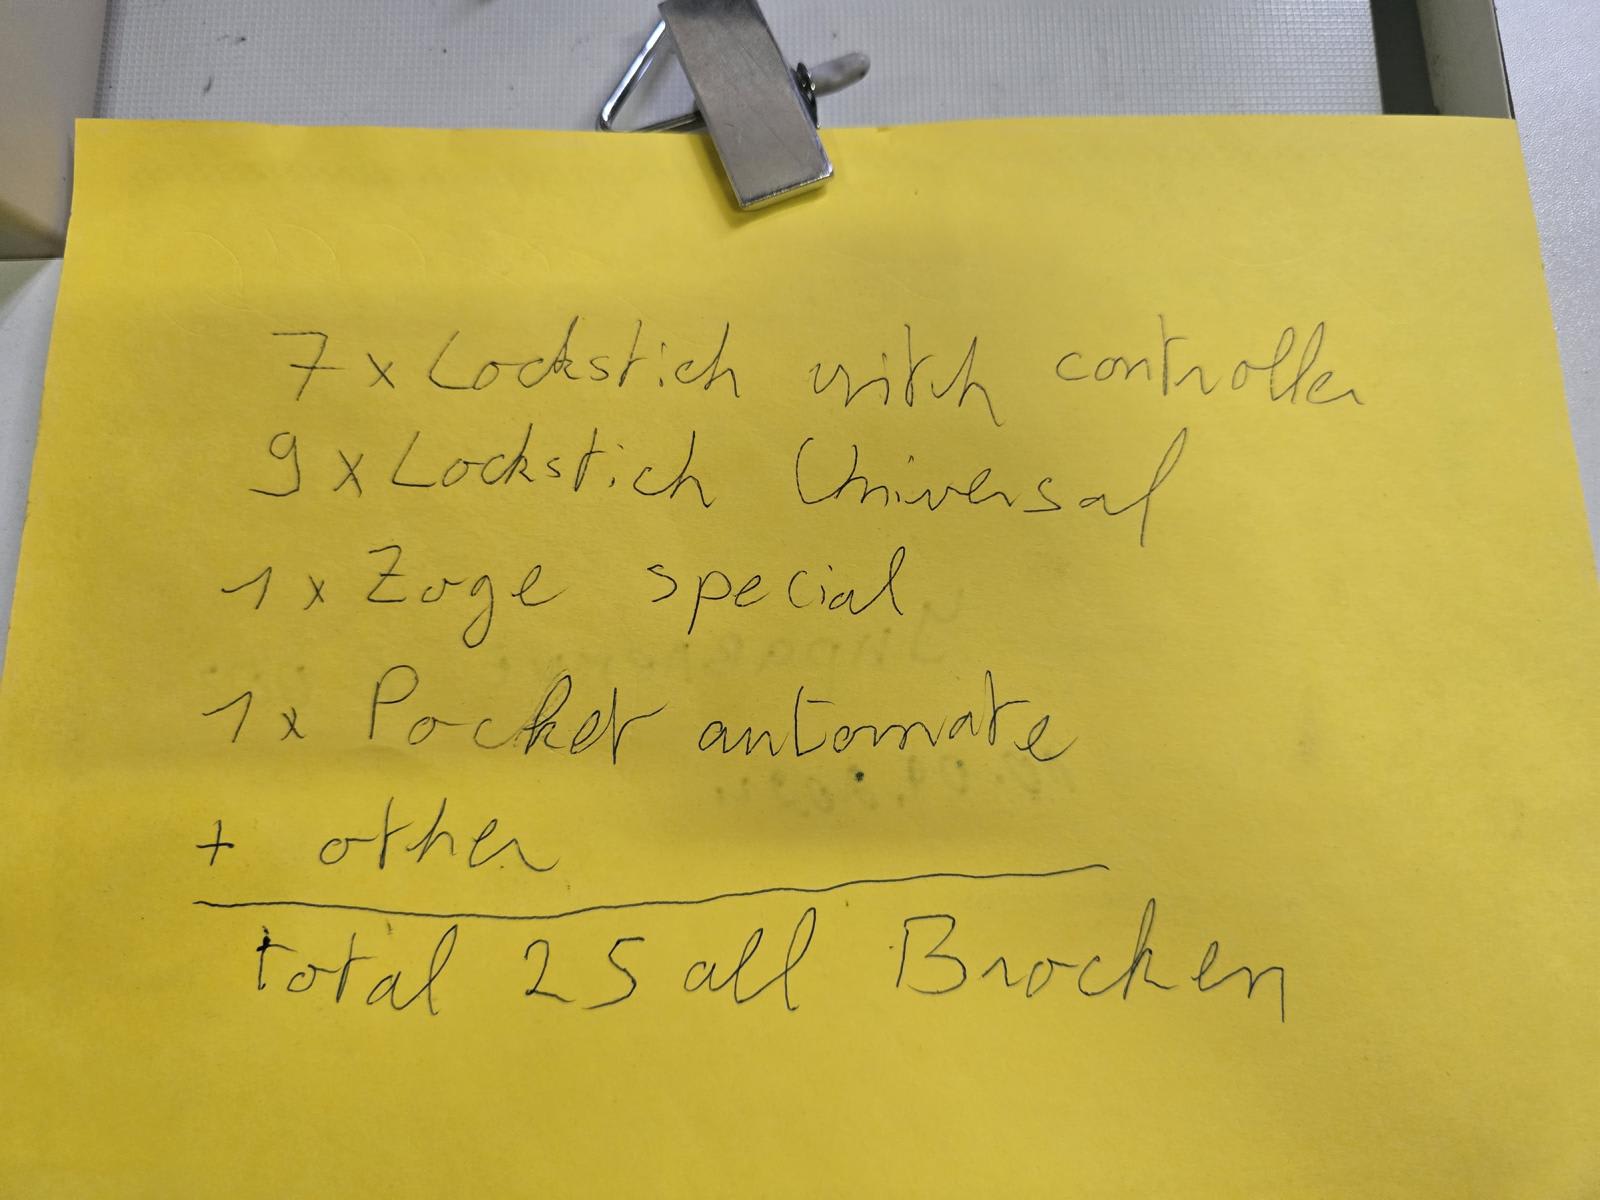 7 x Lockstich witch controller
9 x Lockstich Universal
1 x Zoge special
1x Pocket automate
+ other
total 25 all Brocken